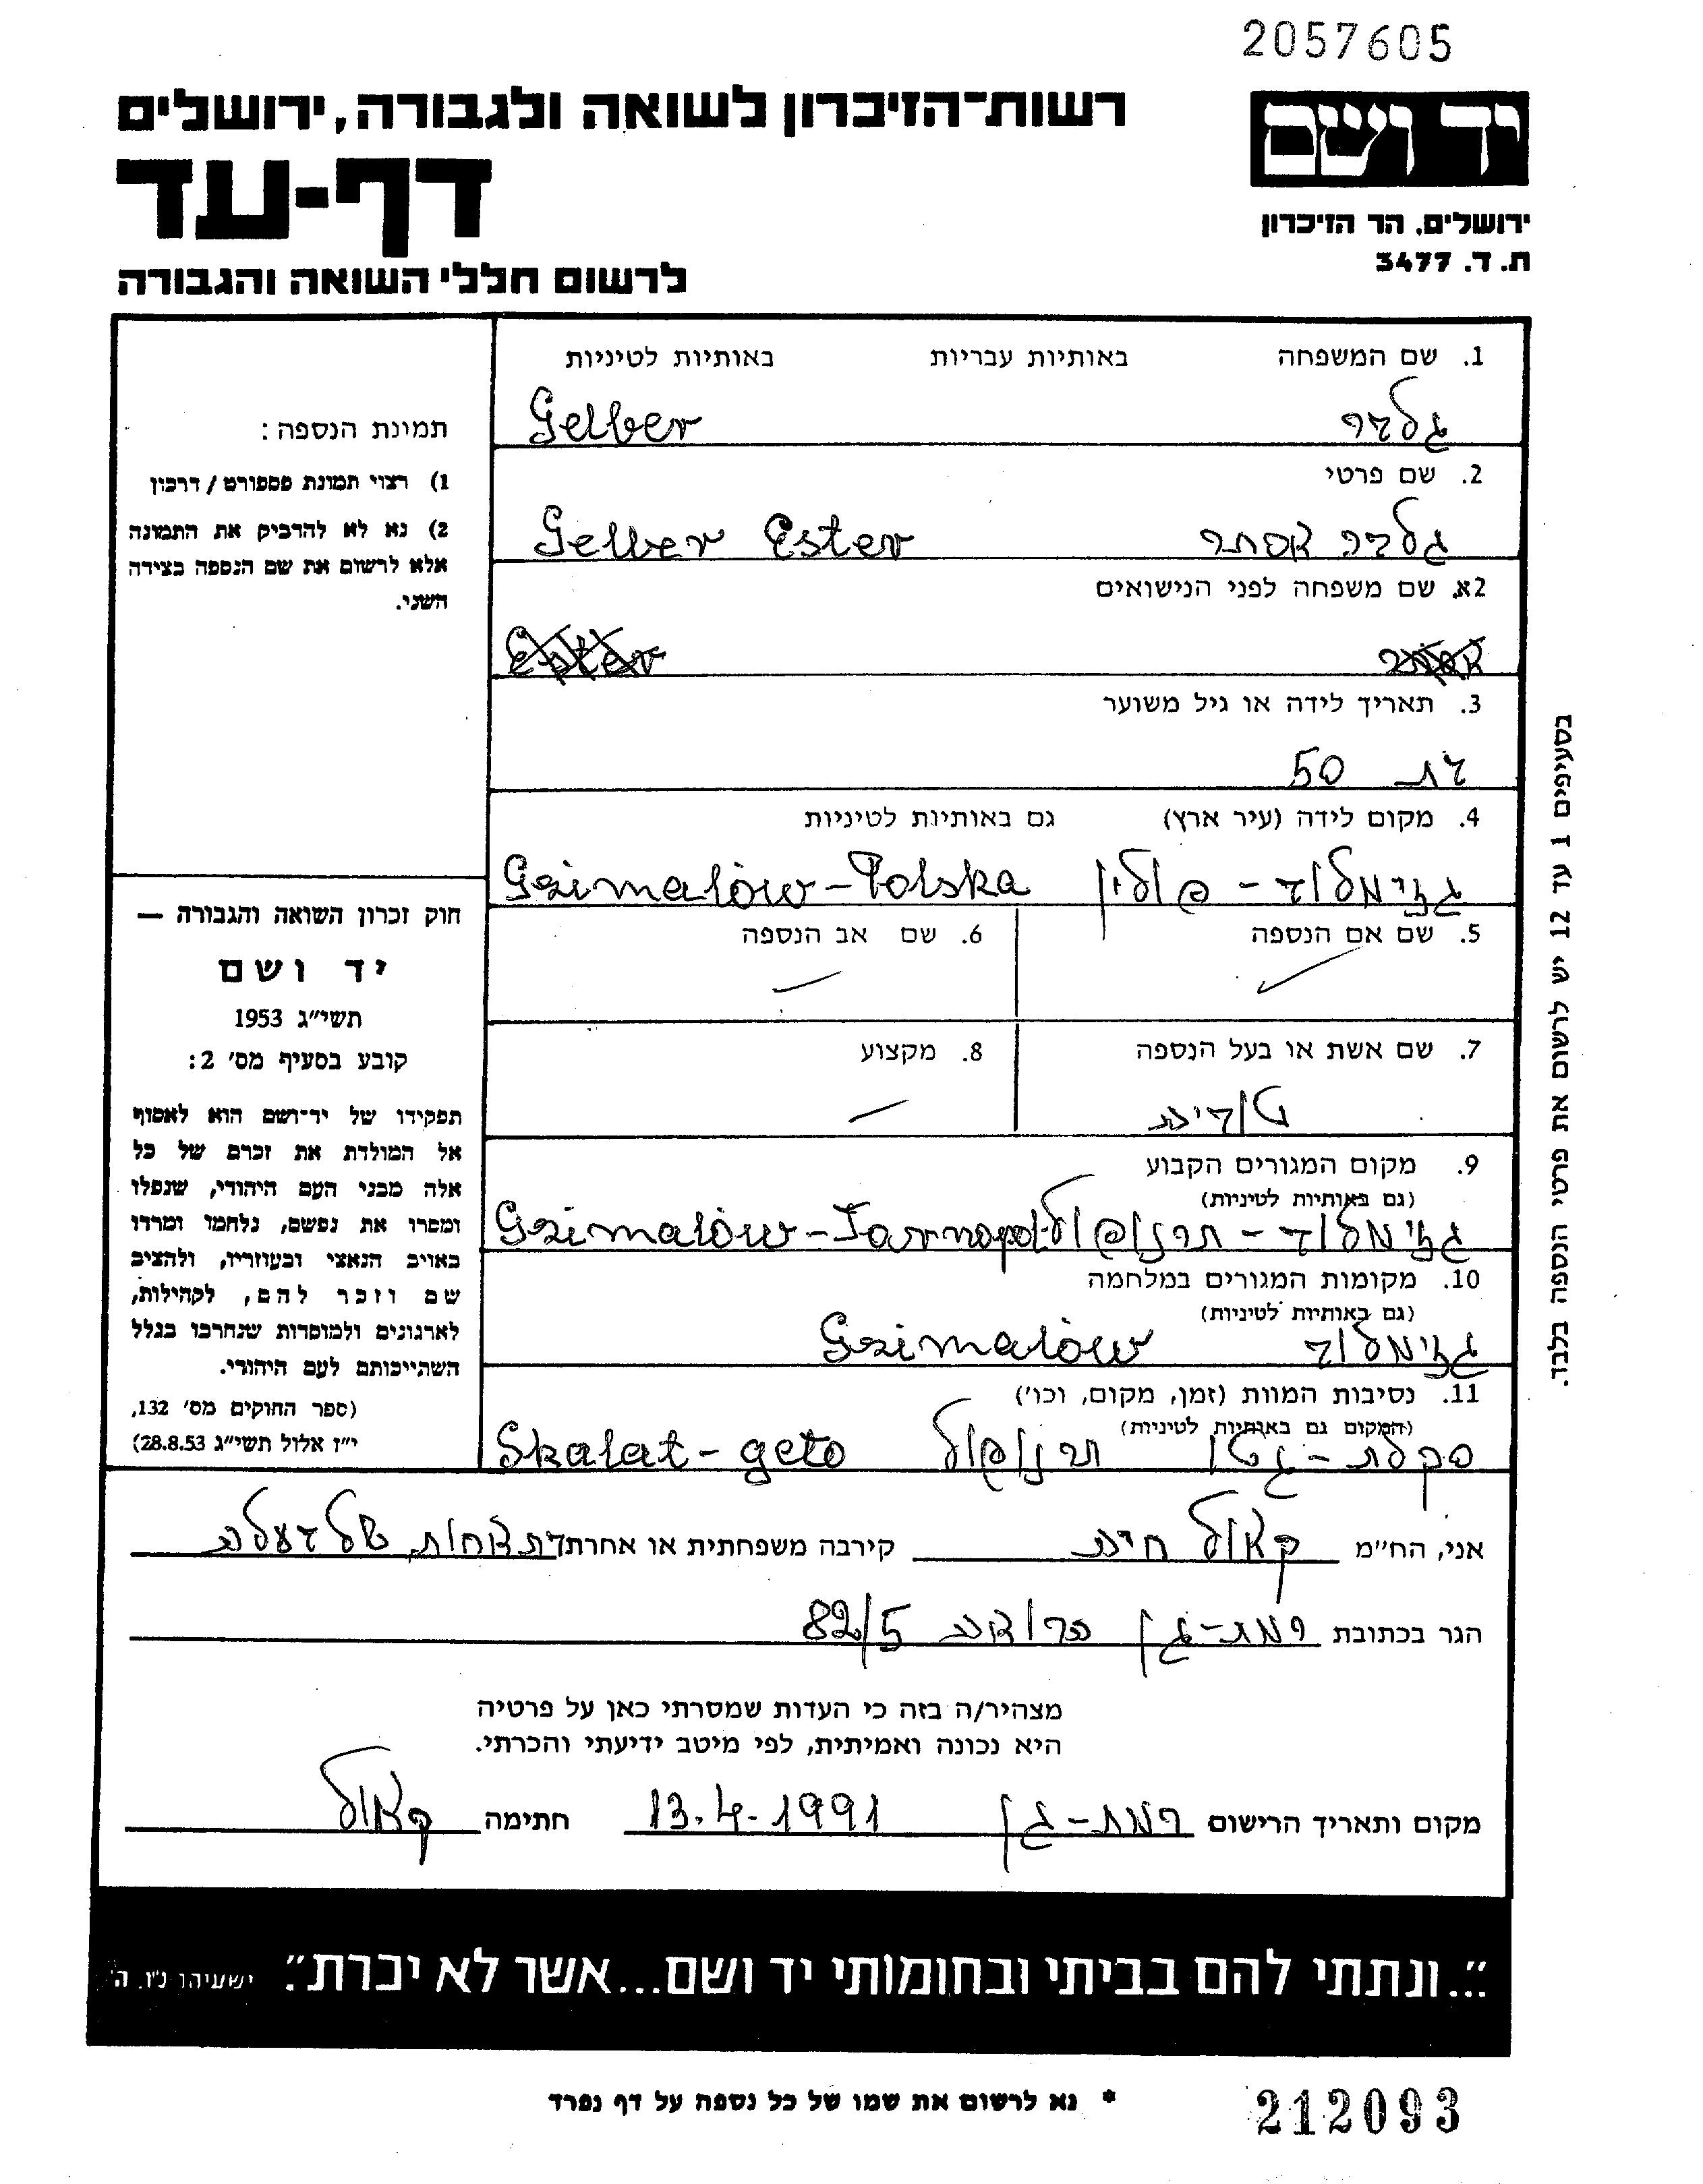 2057605
יד ושם
ירושלים, הר הזיכרון
ת. ד. 3477
רשות־הזיכרון לשואה ולגבורה, ירושלים
דף-עד
לרשום חללי השואה והגבורה
תמונת הנספה:
1) רצוי תמונת פספורט / דרכון
2) נא לא להדביק את התמונה
אלא לרשום את שם הנספה בצידה
השני.
חוק זכרון השואה והגבורה —
יד ושם
תשי״ג 1953
קובע בסעיף מס׳ 2:
תפקידו של יד־ושם הוא לאסוף
אל המולדת את זכרם של כל
אלה מבני העם היהודי, שנפלו
ומסרו את נפשם, נלחמו ומרדו
באויב הנאצי ובעוזריו, ולהציב
שם וזכר להם, לקהילות,
לארגונים ולמוסדות שנחרבו בגלל
השתייכותם לעם היהודי.
(ספר החוקים מס׳ 132,
י״ז אלול תשי״ג 28.8.53)
1. שם המשפחה באותיות עבריות באותיות לטיניות
גלבר Gelber
2. שם פרטי
גלבר אסתר Gelber Ester
2א. שם משפחה לפני הנישואים
3. תאריך לידה או גיל משוער
בת 50
4. מקום לידה (עיר ארץ) גם באותיות לטיניות
גזימלוב - פולין Gzimalów - Polska
5. שם אם הנספה
6. שם אב הנספה
7. שם אשת או בעל הנספה
טוביה
8. מקצוע
9. מקום המגורים הקבוע
(גם באותיות לטיניות)
גזימלוב - תרנופול Gzimalów - Tarnopol
10. מקומות המגורים במלחמה
(גם באותיות לטיניות)
גזימלוב Gzimalów
11. נסיבות המוות (זמן, מקום, וכו׳)
(המקום גם באותיות לטיניות)
סקלת - גטו תרנופול Skalat - geto
אני, הח״מ קאול חיה קירבה משפחתית או אחרת בת אחות של בעלה
הגר בכתובת רמת-גן הרואה 82/5
מצהיר/ה בזה כי העדות שמסרתי כאן על פרטיה
היא נכונה ואמיתית, לפי מיטב ידיעתי והכרתי.
מקום ותאריך הרישום רמת-גן 13.4.1991 חתימה קאול
״...ונתתי להם בביתי ובחומותי יד ושם...אשר לא יכרת״. ישעיהו נ״ו, ה׳
* נא לרשום את שמו של כל נספה על דף נפרד
212093
בסעיפים 1 עד 12 יש לרשום את פרטי הנספה בלבד.